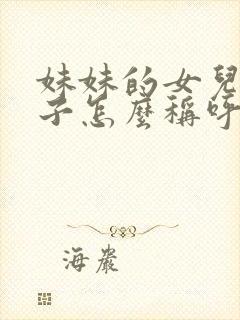 妹妹的女兒
子怎麼稱呼
海嚴